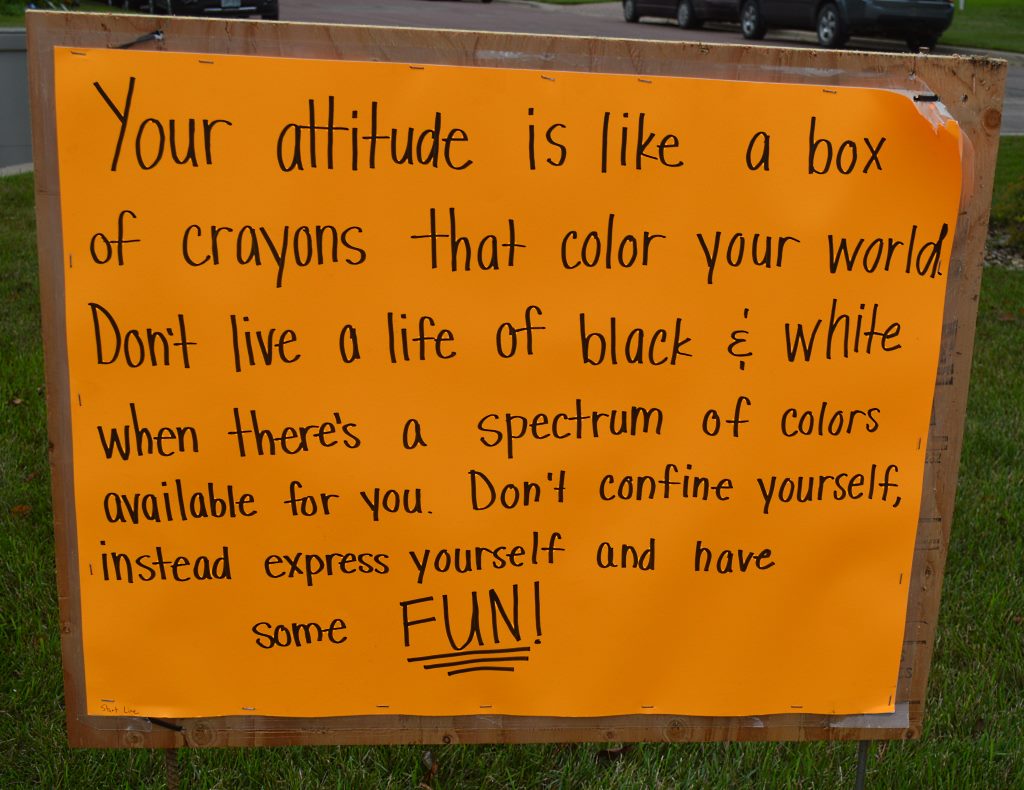 Your attitude is like a box
of crayons that color your world.
Don't live a life of black & white
when there's a spectrum of colors
available for you. Don't confine yourself,
instead express yourself and have
some FUN!
Start Line